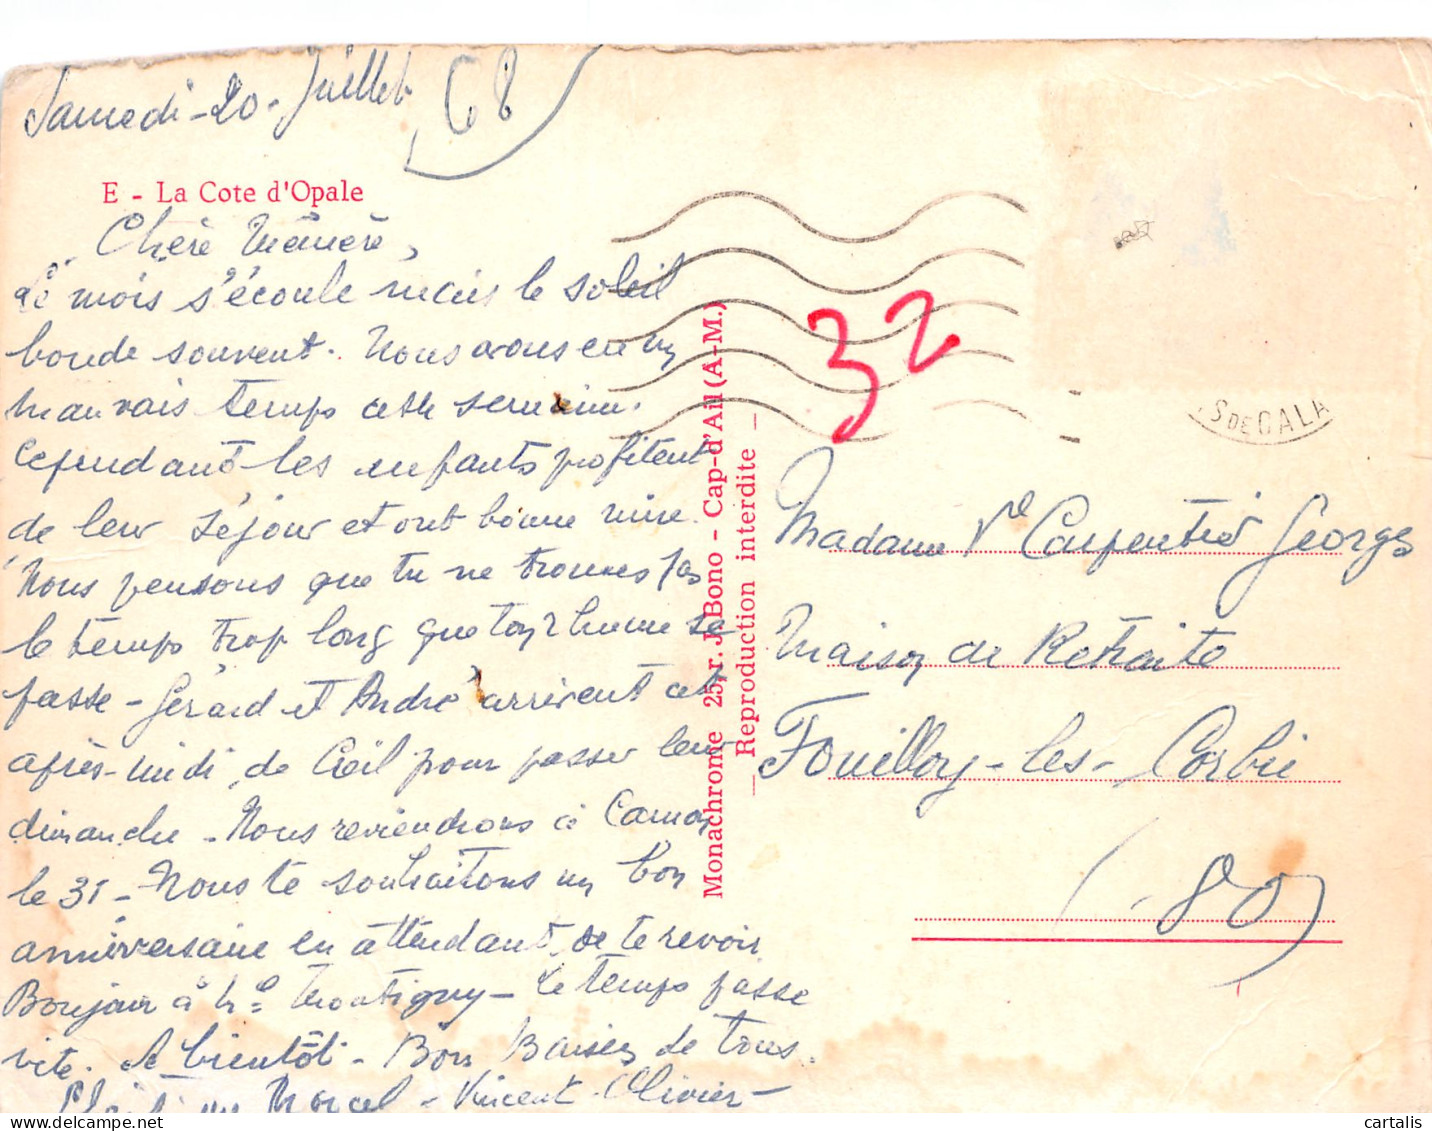 Samedi - 20 - Juillet 68
E - La Cote d'Opale
Chère Mémère,
Le mois s'écoule mais le soleil
boude souvent. Nous avons eu un
mauvais temps cette semaine.
Cependant les enfants profitent
de leur séjour et ont bonne mine.
Nous pensons que tu ne trouves pas
le temps trop long que ton rhume se
passe - Gérard et André arrivent cet
après-midi de Creil pour passer leur
dimanche - Nous reviendrons à Camon
le 31 - Nous te souhaitons un bon
anniversaire en attendant de te revoir
Bonjour à Me Montigny - Le temps passe
vite. A bientôt - Bons Baisers de tous.
Marcel - Vincent - Olivier -
Monachrome 25, r. J. Bono - Cap-d'Ail (A-M.)
— Reproduction interdite —
32
S DE CALA
Madame Ve Carpentier Georges
Maison de Retraite
Fouilloy-les-Corbie
(80)
cartalis
delcampe.net